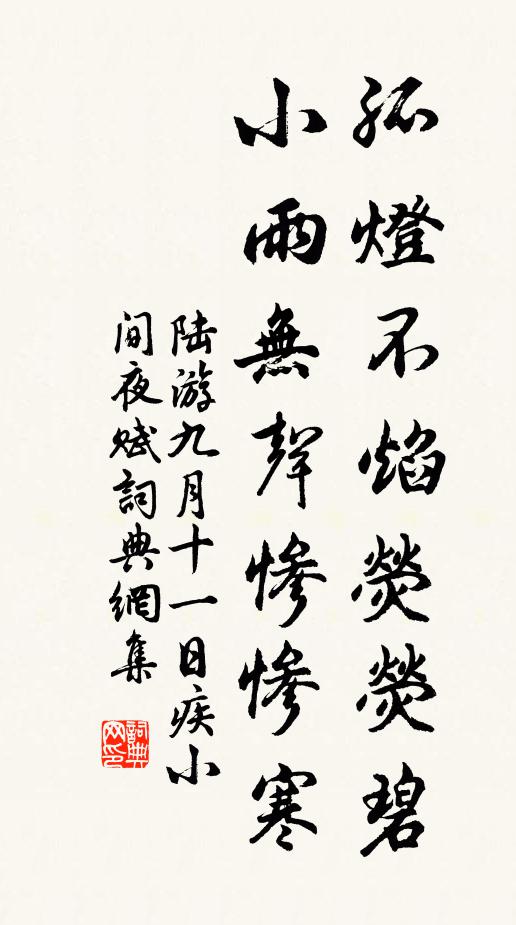 孤燈不焰熒熒碧
小雨無聲慘慘寒
陆游九月十一日疾小
间夜赋詞典網集
詞典
网印